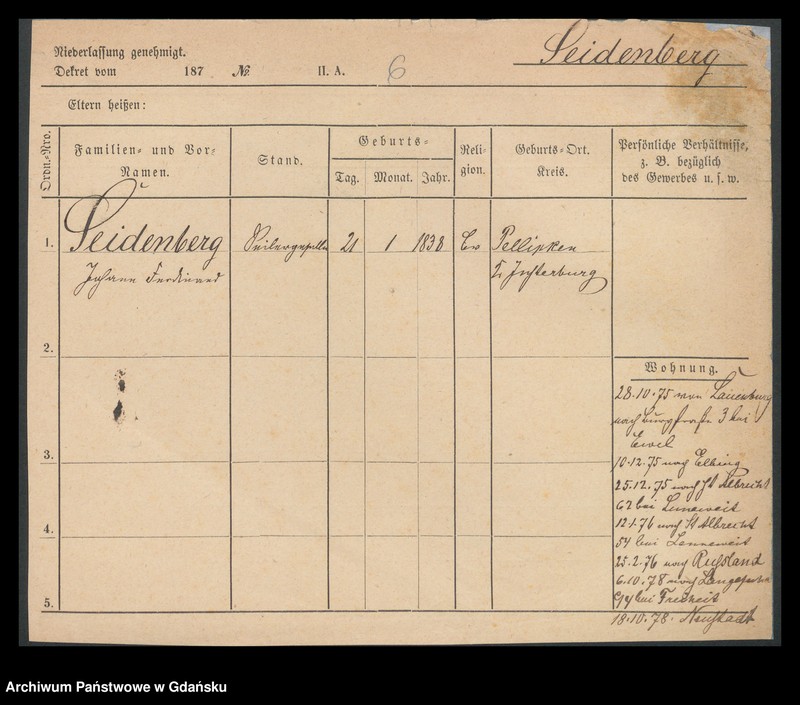 Seidenberg
Niederlassung genehmigt.
Dekret vom 187 No. II. A. 6
Eltern heißen:
Ordn.-Nro.
Familien- und Vor-
Namen.
Stand.
Geburts-
Tag. Monat. Jahr.
Reli-
gion.
Geburts-Ort.
Kreis.
Persönliche Verhältnisse,
z. B. bezüglich
des Gewerbes u. s. w.
1. Seidenberg Seilergeselle 21 1 1838 Ev Pellipken
Johann Ferdinand Insterburg
2.
Wohnung.
28.10.75 von Lauenburg
nach Burgstraße 3 bei
Ewel
3.
10.12.75 nach Elbing
25.12.75 nach St Albrecht
62 bei
4.
12.1.76 nach St Albrecht
54 bei
25.2.76 nach Russland
6.10.78 nach
5.
bei Freiheit
18.10.78. Neustadt
Archiwum Państwowe w Gdańsku